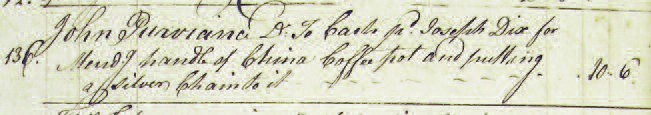 John Purviance Dr To Cash pd. Joseph Dix for
136. Mendg handle of China Coffee pot and putting
a Silver Chain to it .10.6